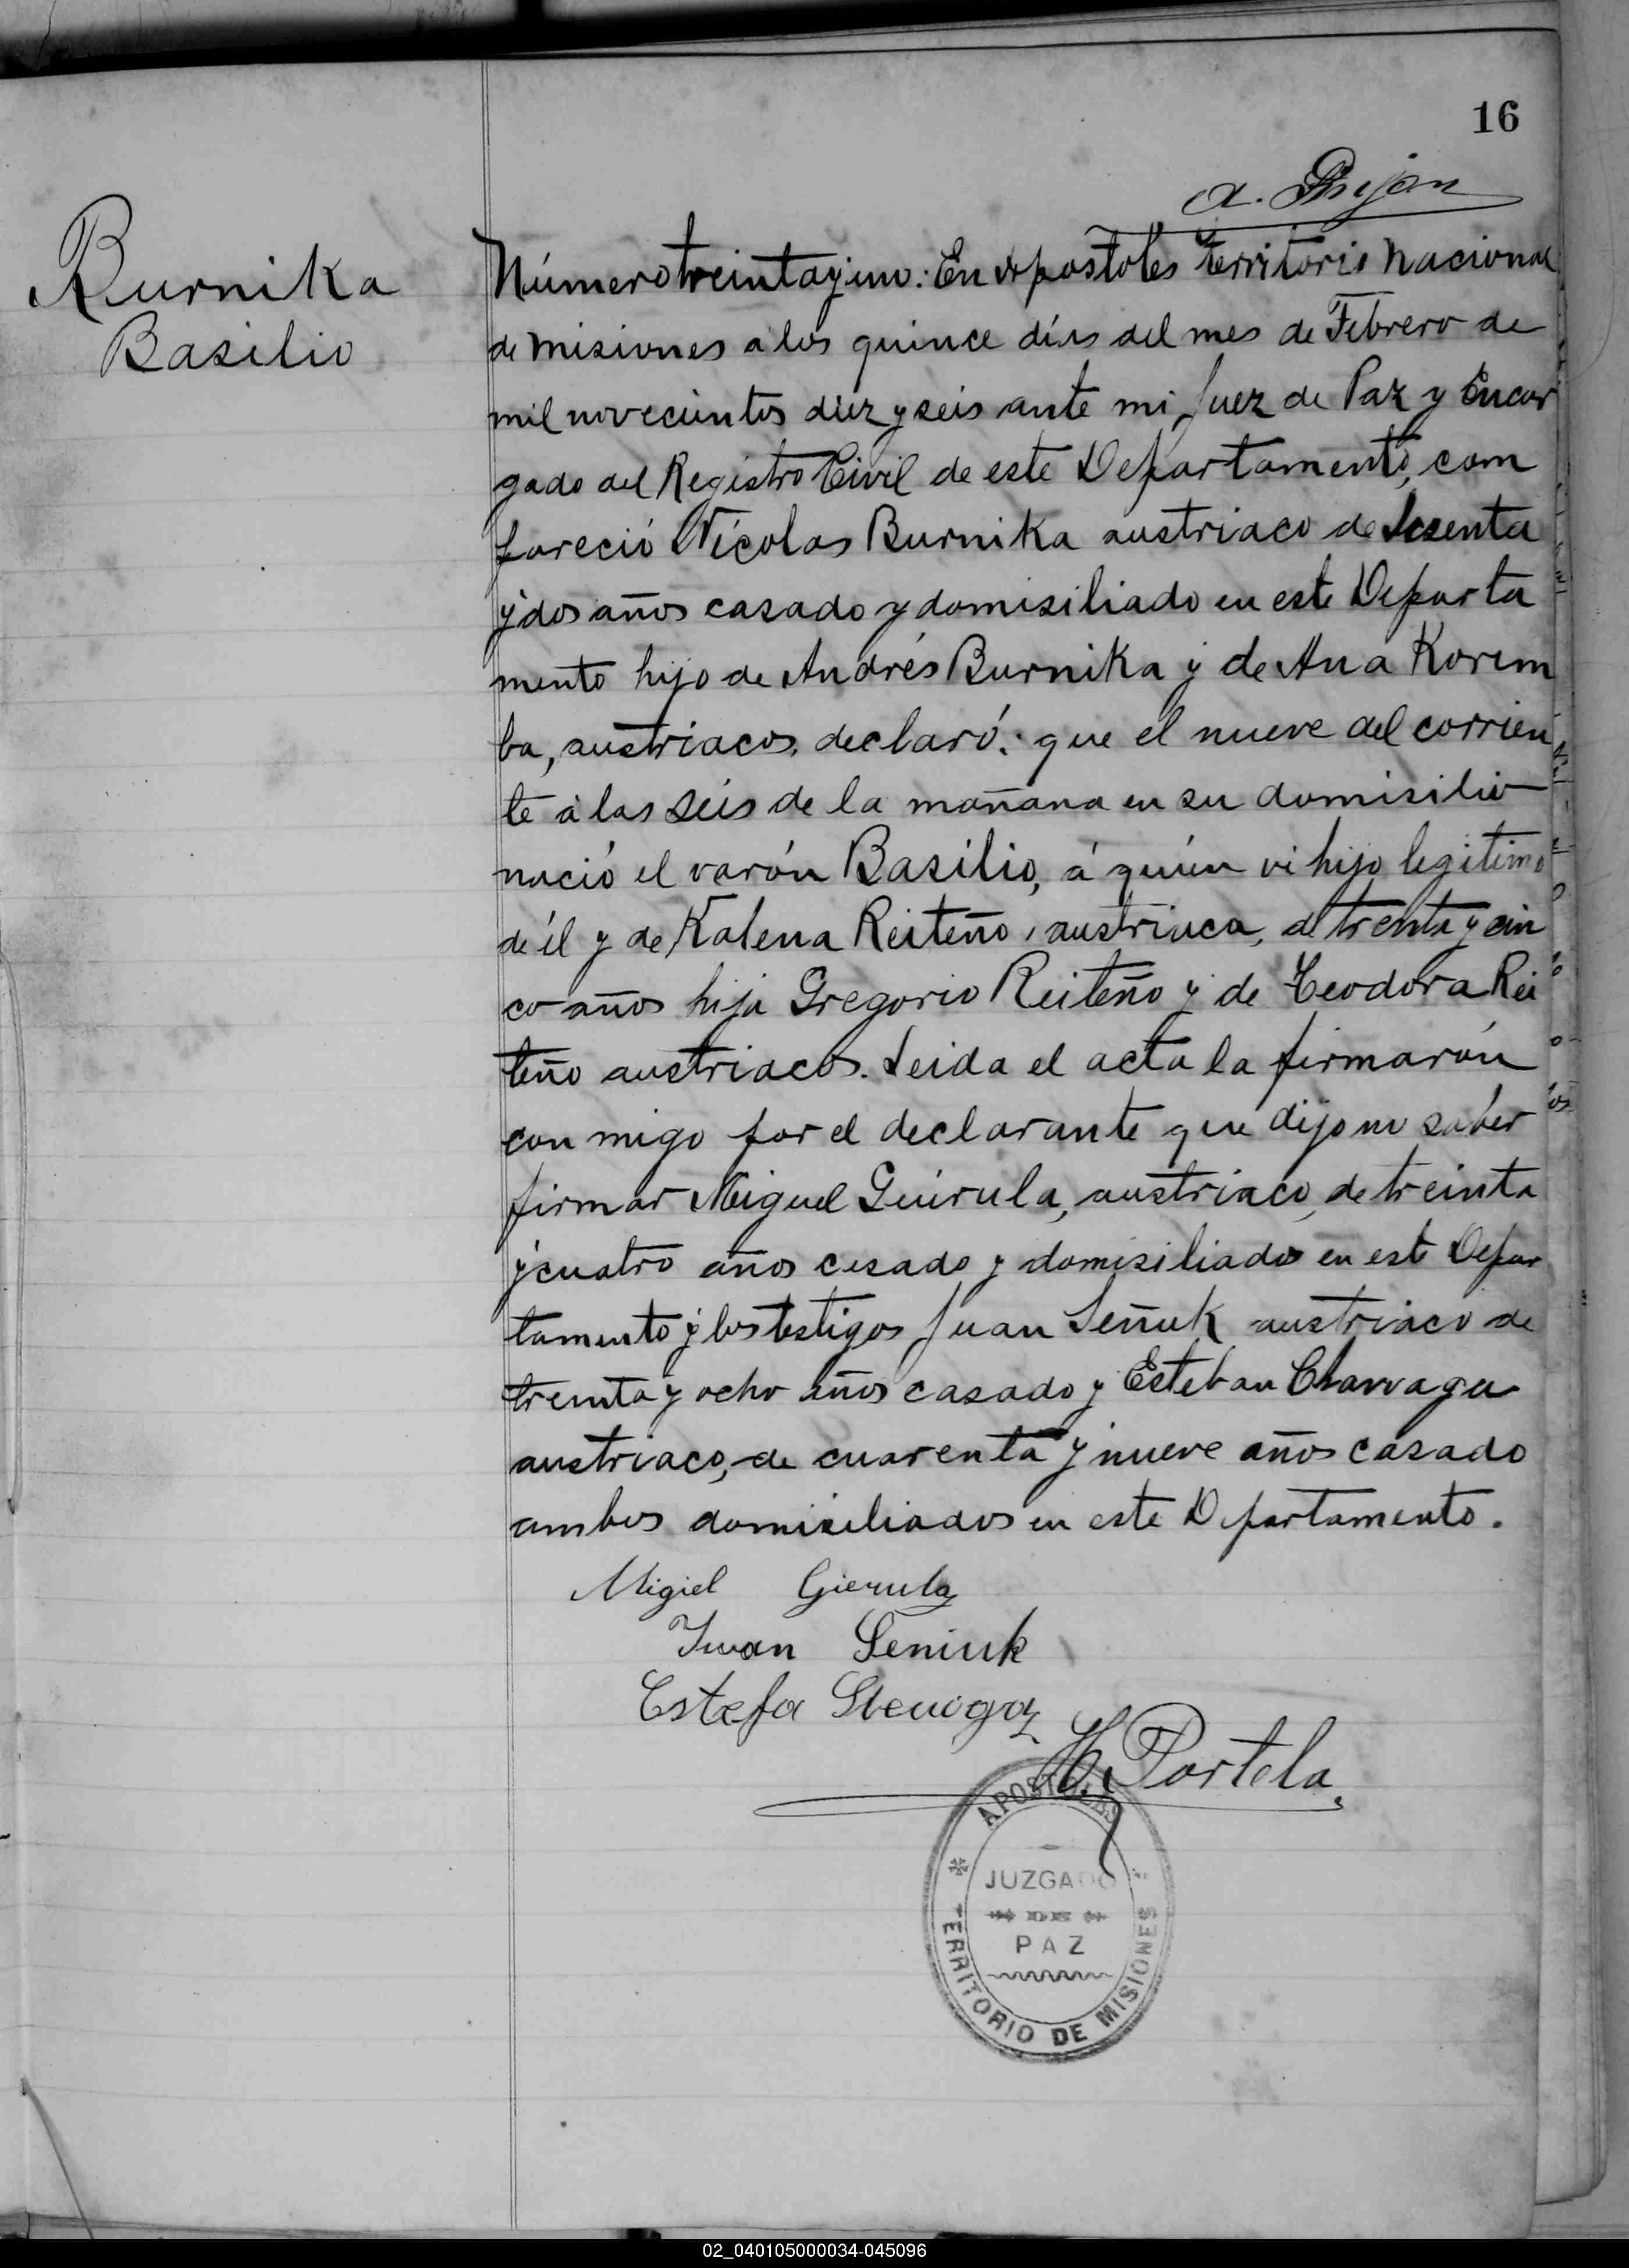 16
Burnika
Basilio
Número treinta y uno: En Apostoles Territorio Nacional
de Misiones a los quince días del mes de Febrero de
mil novecientos diez y seis ante mi Juez de Paz y Encar
gado del Registro Civil de este Departamento, com
pareció Nicolas Burnika austriaco de sesenta
y dos años casado y domisiliado en este Departa
mento hijo de Andrés Burnika y de Ana Korem
ba, austriacos, declaró: que el nueve del corrien
te á las seis de la mañana en su domisilio
nació el varón Basilio, á quien vi hijo legitimo
de él y de Kalena Reiteño, austriaca, de trenta y cin
co años hija Gregorio Reiteño y de Teodora Rei
teño austriacos. Leida el acta la firmarón
con migo por el declarante que dijo no saber
firmar Miguel Guirula, austriaco, de treinta
y cuatro años casado y domisiliado en este Depar
tamento y los testigos Juan Señuk austriaco de
trenta y ocho años casado y Esteban
austriaco, de cuarenta y nueve años casado
ambos domisiliados en este Departamento.
Migiel Gierula
Iwan Seniuk
Estefa
H. Portela
APOSTOLES
JUZGADO
DE
PAZ
TERRITORIO DE MISIONES
02_040105000034-045096